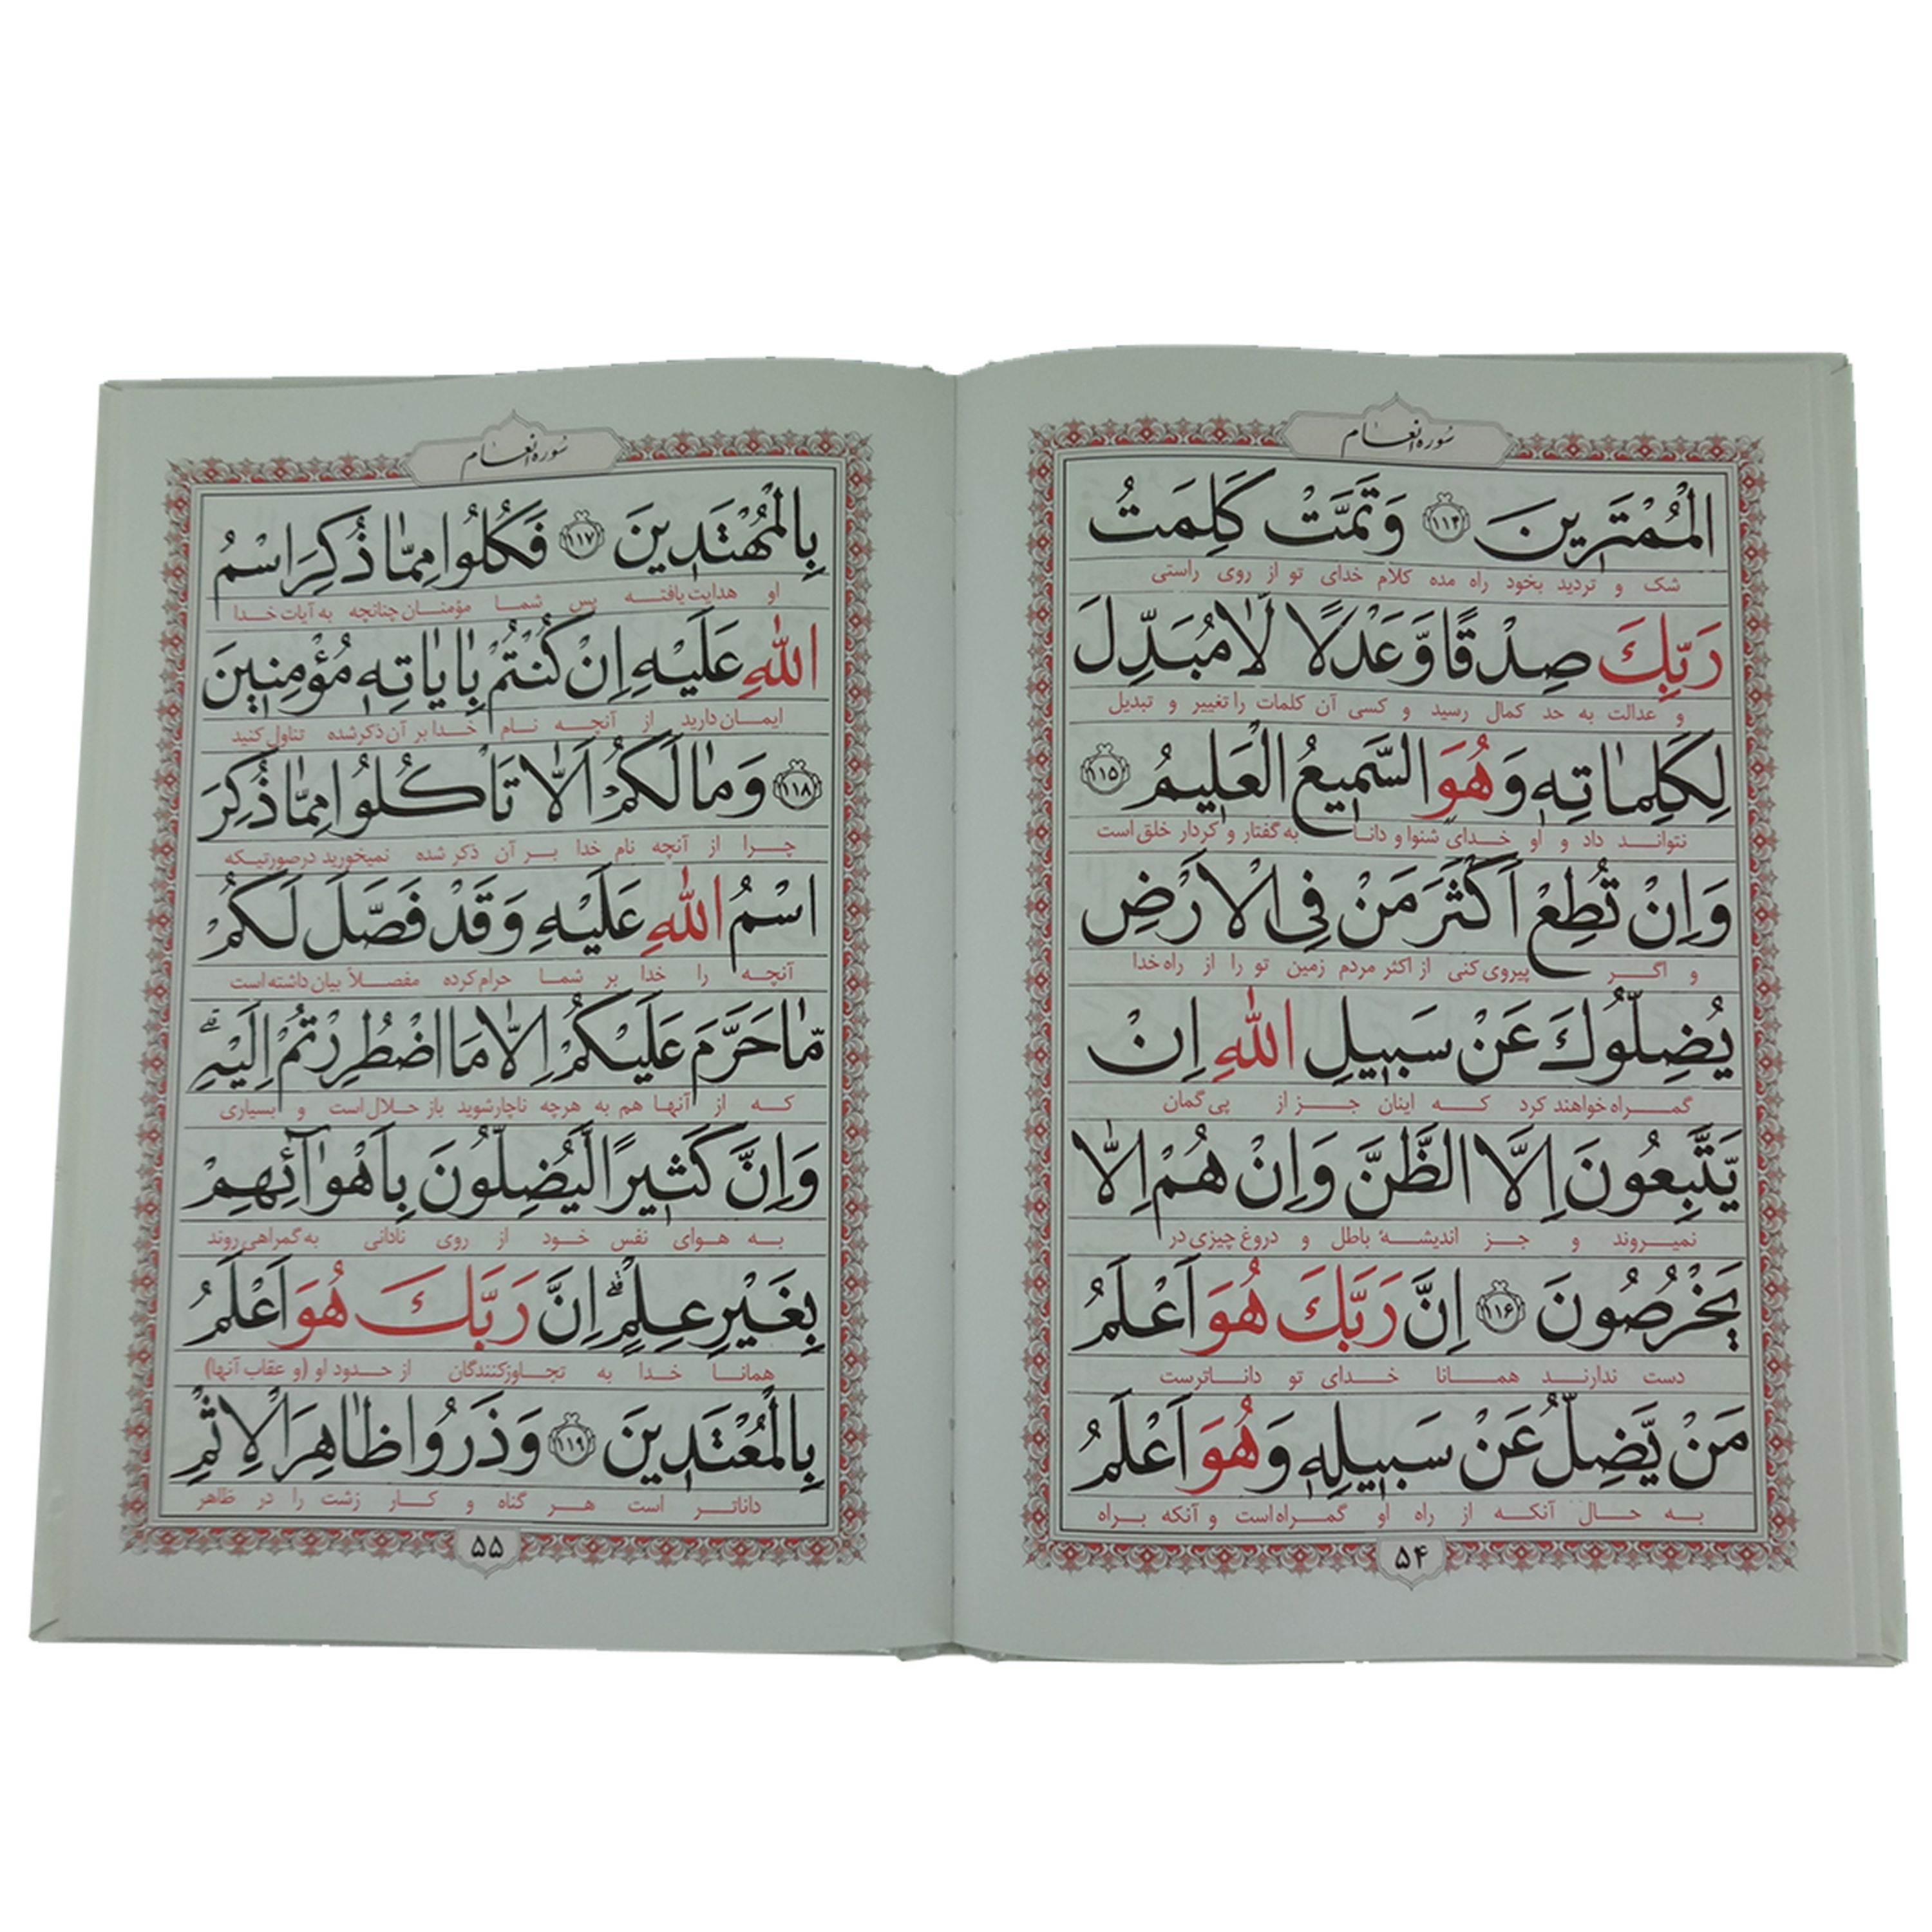 سُورَه اَنعَام
الْمُمْتَرِينَ ﴿۱۱۴﴾ وَتَمَّتْ كَلِمَتُ
شک و تردید بخود راه مده کلام خدای تو از روی راستی
رَبِّكَ صِدْقًا وَّعَدْلًا لَّامُبَدِّلَ
و عدالت به حد کمال رسید و کسی آن کلمات را تغییر و تبدیل
لِكَلِمٰاتِهٖ وَهُوَ السَّمِيعُ الْعَلِيمُ ﴿۱۱۵﴾
نتواند داد و او خدای شنوا و دانا به گفتار و کردار خلق است
وَاِنْ تُطِعْ اَكْثَرَ مَنْ فِي الْاَرْضِ
و اگر پیروی کنی از اکثر مردم زمین تو را از راه خدا
يُضِلُّوكَ عَنْ سَبِيلِ اللّٰهِ اِنْ
گمراه خواهند کرد که اینان جز از پی گمان
يَّتَّبِعُونَ اِلَّا الظَّنَّ وَاِنْ هُمْ اِلّٰا
نمیروند و جز اندیشهٔ باطل و دروغ چیزی در
يَخْرُصُونَ ﴿۱۱۶﴾ اِنَّ رَبَّكَ هُوَ اَعْلَمُ
دست ندارند همانا خدای تو داناترست
مَنْ يَّضِلُّ عَنْ سَبِيلِهٖ وَهُوَ اَعْلَمُ
به حال آنکه از راه او گمراه است و آنکه براه
۵۴
سُورَه اَنعَام
بِالْمُهْتَدِينَ ﴿۱۱۷﴾ فَكُلُوا مِمّٰا ذُكِرَ اسْمُ
او هدایت یافته پس شما مؤمنان چنانچه به آیات خدا
اللّٰهِ عَلَيْهِ اِنْ كُنْتُمْ بِاٰيٰاتِهٖ مُؤْمِنِينَ
ایمان دارید از آنچه نام خدا بر آن ذکر شده تناول کنید
﴿۱۱۸﴾ وَمٰا لَكُمْ اَلّٰا تَاْكُلُوا مِمّٰا ذُكِرَ
چرا از آنچه نام خدا بر آن ذکر شده نمیخورید درصورتیکه
اسْمُ اللّٰهِ عَلَيْهِ وَقَدْ فَصَّلَ لَكُمْ
آنچه را خدا بر شما حرام کرده مفصلاً بیان داشته است
مّٰا حَرَّمَ عَلَيْكُمْ اِلّٰا مَا اضْطُرِرْتُمْ اِلَيْهِ ۗ
که از آنها هم به هرچه ناچار شوید باز حلال است و بسیاری
وَاِنَّ كَثِيرًا لَّيُضِلُّونَ بِاَهْوٰٓائِهِمْ
به هوای نفس خود از روی نادانی به گمراهی روند
بِغَيْرِ عِلْمٍ ۗ اِنَّ رَبَّكَ هُوَ اَعْلَمُ
همانا خدا به تجاوزکنندگان از حدود او (و عقاب آنها)
بِالْمُعْتَدِينَ ﴿۱۱۹﴾ وَذَرُوا ظٰاهِرَ الْاِثْمِ
داناتر است هر گناه و کار زشت را در ظاهر
۵۵